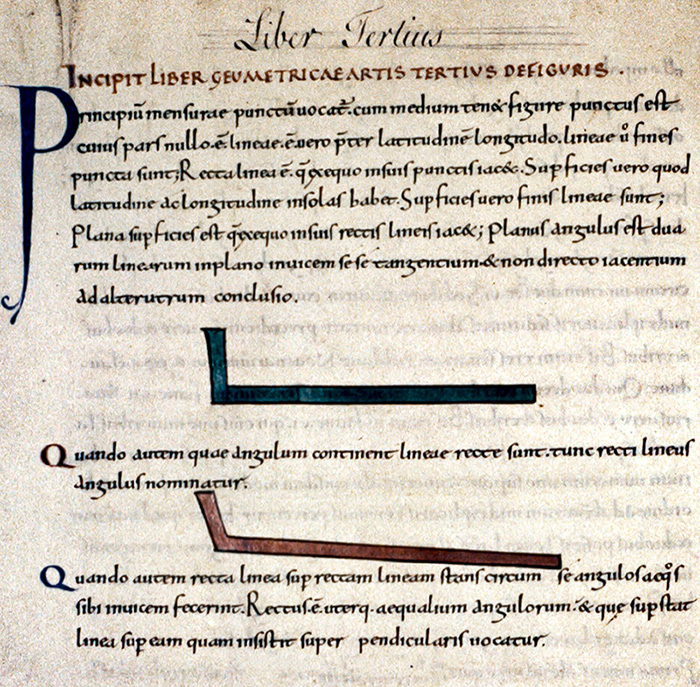 Liber Tertius
INCIPIT LIBER GEUMETRICAE ARTIS TERTIUS DE FIGURIS .
Principiū mensurae punctū uocat̄. cum medium ten& figure punctus est
cuius pars nulla .ē. lineae .ē. uero p̄ter latitudinē longitudo. lineae u̇ fines
puncta sunt; Recta linea ē. q̄ ex equo in suis punctis iac&. Supficies uero quod
latitudine ac longitudine in solas habet. Supficies uero finis lineae sunt;
Plana supficies est q̄ ex equo in suis rectis lineis iac&; Planus angulus est dua
rum linearum in plano inuicem se se tangentium & non directo iacentium
ad alterutrum conclusio.
Quando autem quae angulum continent lineae recte sunt. tunc recti lineus
angulus nominatur.
Quando autem recta linea sup rectam lineam stans circum se angulos aeq̄s
sibi inuicem fecerint. Rectus .ē. uterq. aequalium angulorum. & que sup stat
linea sup eam quam insistit super pendicularis uocatur.